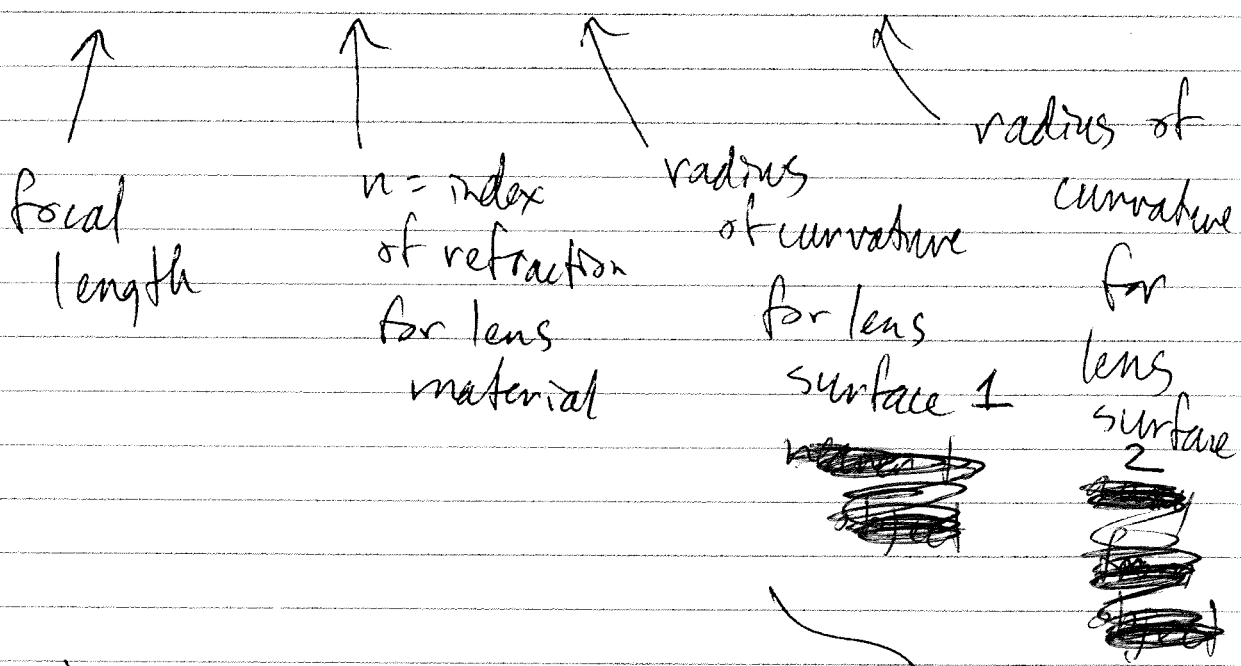 focal
length
n = index
of refraction
for lens
material
radius
of curvature
for lens
surface 1
radius of
curvature
for
lens
surface
2